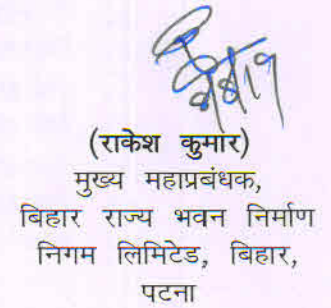 (राकेश कुमार)
मुख्य महाप्रबंधक,
बिहार राज्य भवन निर्माण
निगम लिमिटेड, बिहार,
पटना